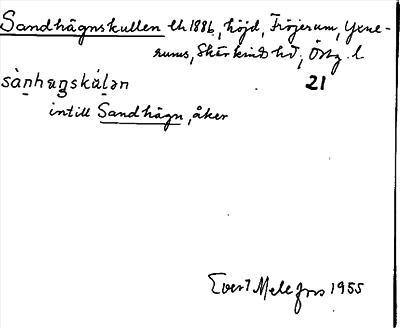 Sandhägnskullen lh 1886, höjd, Fröjerum, Yxne-
rums, Skärkinds hd, Östg. l
sàn̲hæŋskúl̲ən 21
intill Sandhägn, åker
Evert Melefors 1955